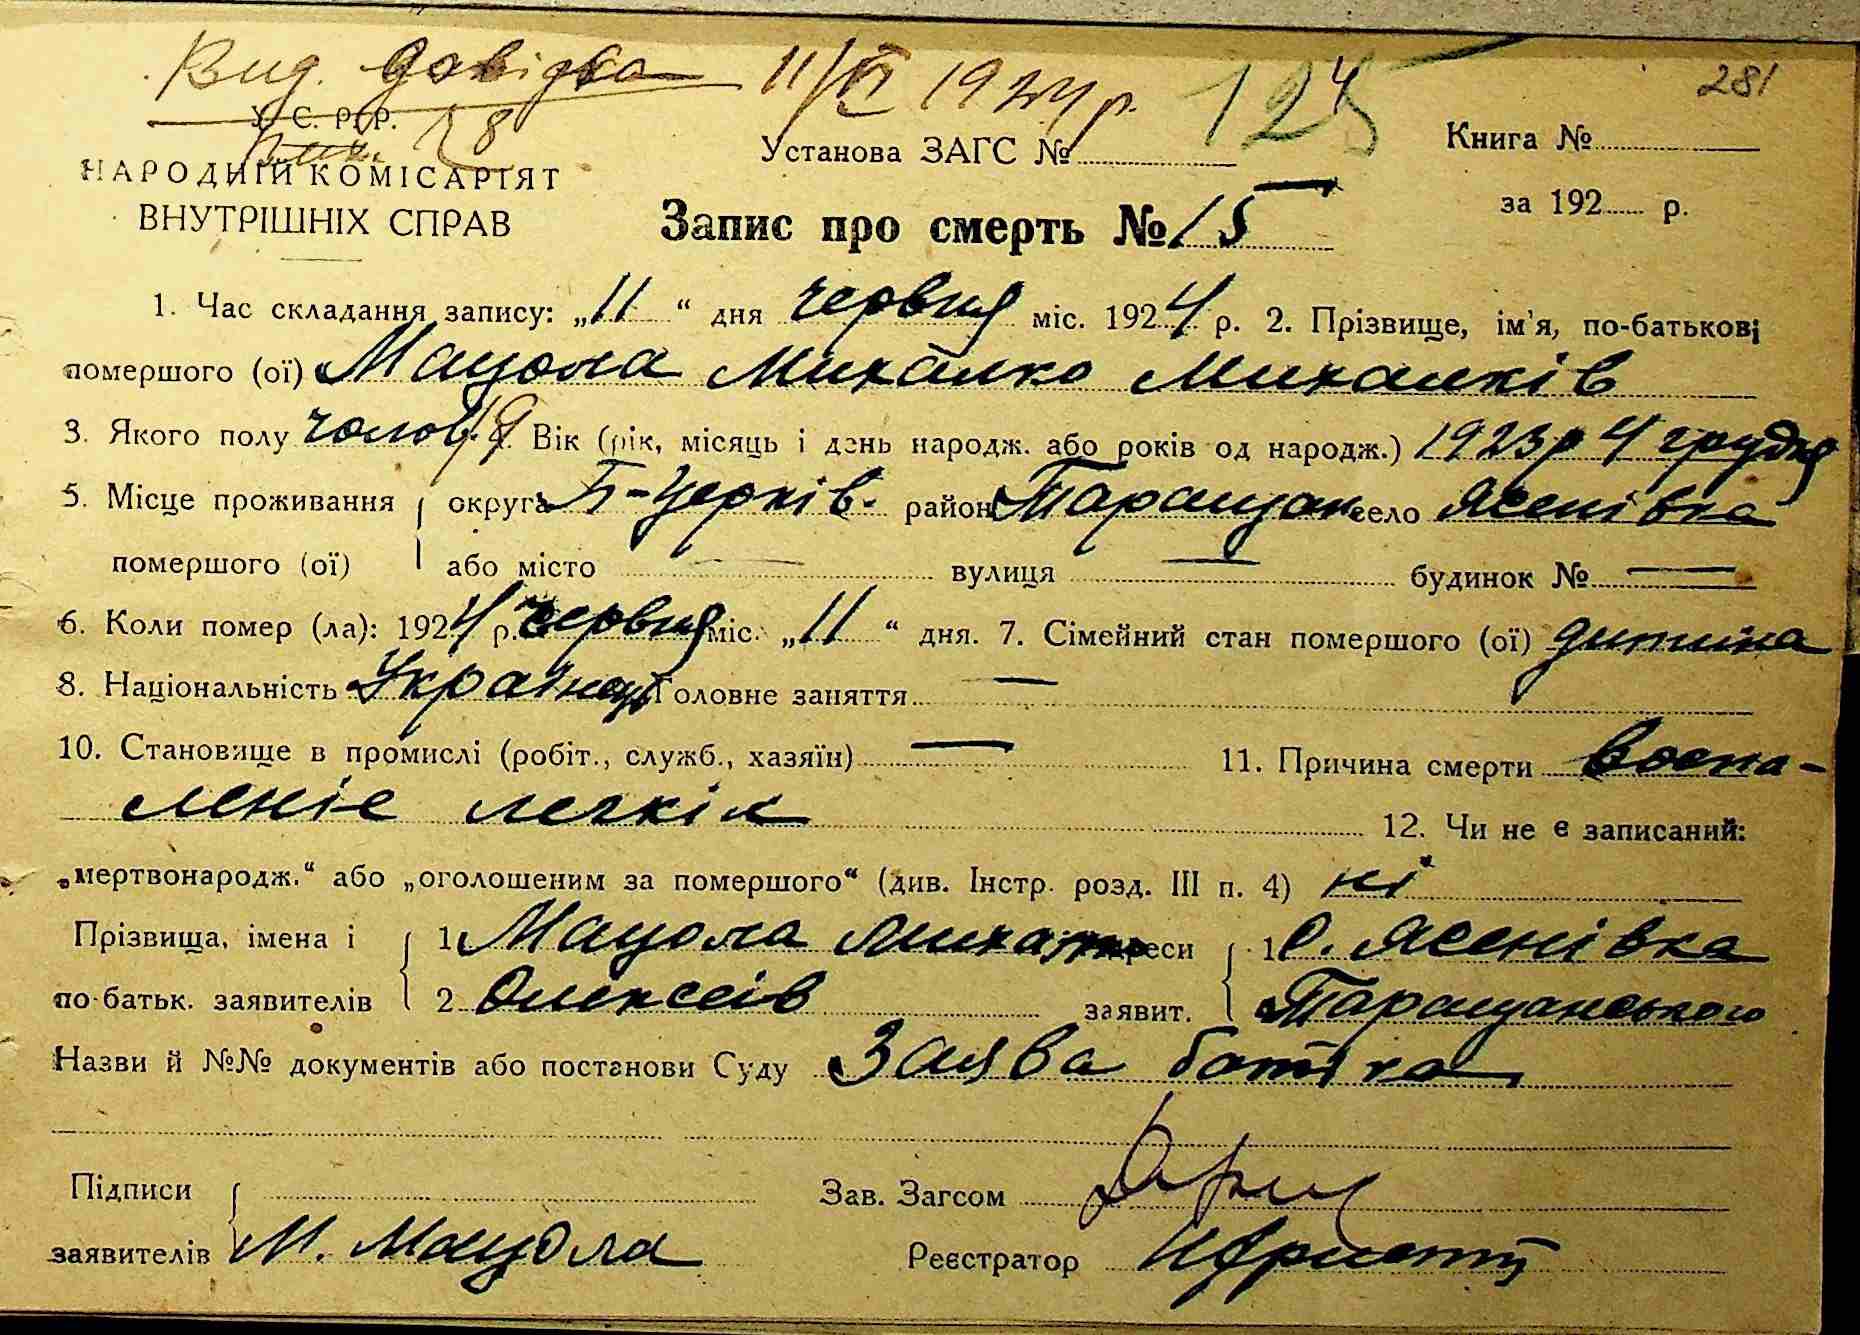 Вид. довідка 11/VI 1924 р. 124 281
У. С. Р. Р. 28
НАРОДНИЙ КОМІСАРІЯТ
ВНУТРІШНІХ СПРАВ
Установа ЗАГС №
Книга №
за 192 р.
Запис про смерть № 15
1. Час складання запису: „11“ дня червня міс. 1924 р. 2. Прізвище, ім'я, по-батькові
помершого (ої) Мацола Михалко Михалків
3. Якого полу чолов. 4. Вік (рік, місяць і день народж. або років од народж.) 1923 р 4 грудня
5. Місце проживання округа Б-Церків. район Таращан село Ясенівка
помершого (ої) або місто — вулиця — будинок № —
6. Коли помер (ла): 1924 р. червня міс. „11“ дня. 7. Сімейний стан помершого (ої) дитина
8. Національність Українец Головне заняття —
10. Становище в промислі (робіт., служб., хазяїн) — 11. Причина смерти воспа-
леніе легкіх 12. Чи не є записаний:
„мертвонародж.“ або „оголошеним за помершого“ (див. Інстр. розд. III п. 4) ні
Прізвища, імена і 1 Мацола Михалко Адреси 1 с. Ясенівка
по-батьк. заявителів 2 Олексеів заявит. Таращанського
Назви й №№ документів або постанови Суду Заява батька
Підписи Зав. Загсом
заявителів М. Мацола Реєстратор